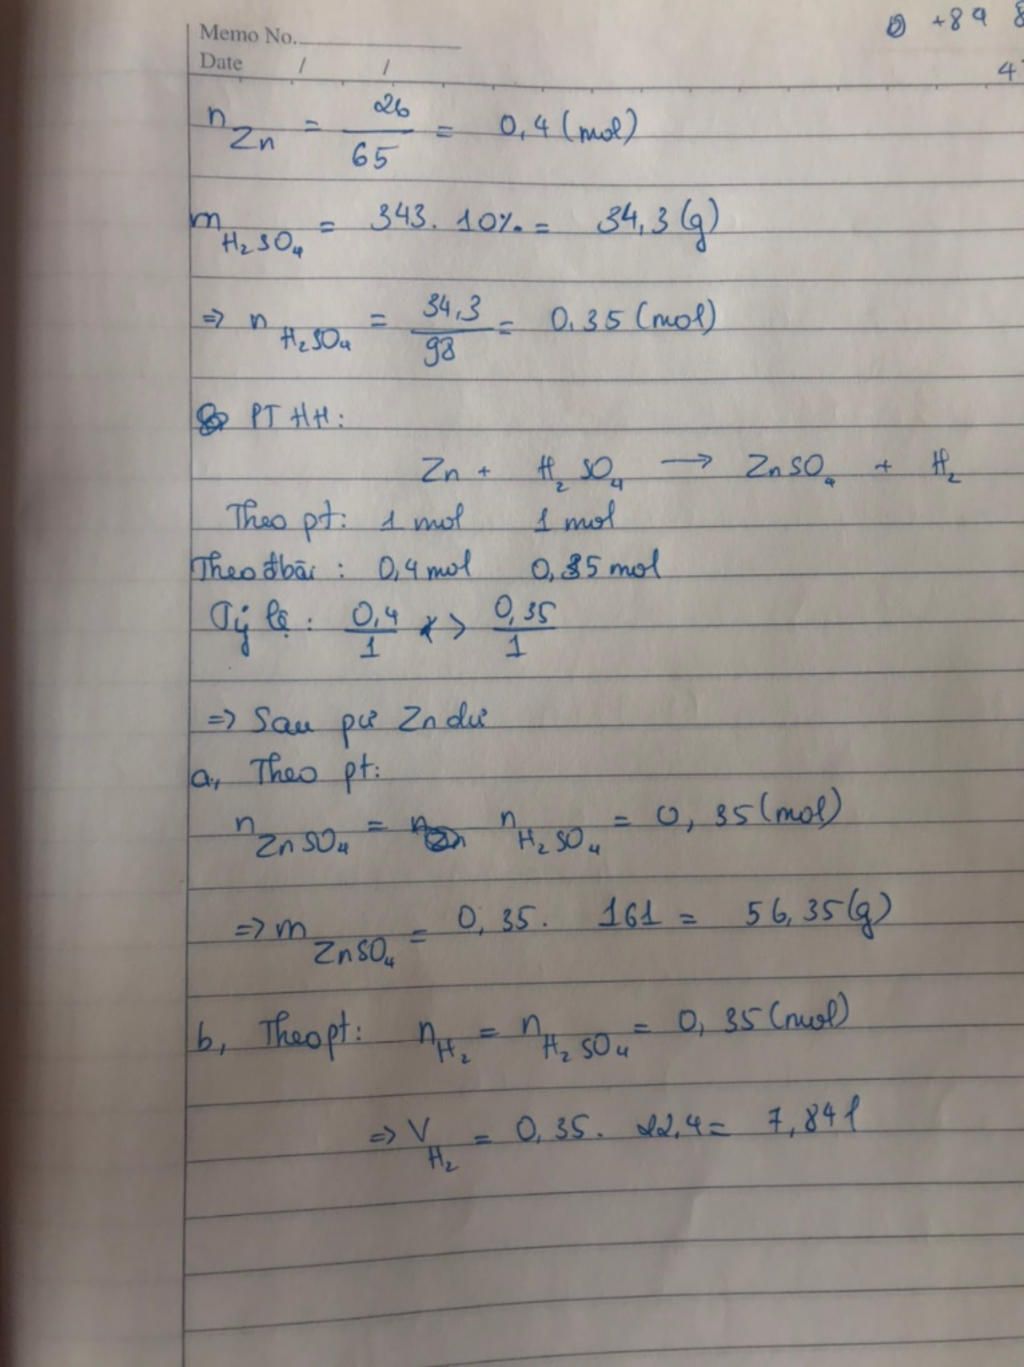 0 +89 8
4
Memo No.
Date / /
n Zn = 26/65 = 0,4 (mol)
m H₂SO₄ = 343. 10% = 34,3 (g)
=> n H₂SO₄ = 34,3/98 = 0,35 (mol)
PTHH:
Zn + H₂SO₄ → ZnSO₄ + H₂
Theo pt: 1 mol 1 mol
Theo đbài : 0,4 mol 0,35 mol
Tỷ lệ : 0,4/1 > 0,35/1
=> Sau pư Zn dư
a, Theo pt:
n ZnSO₄ = n H₂SO₄ = 0,35 (mol)
=> m ZnSO₄ = 0,35. 161 = 56,35 (g)
b, Theo pt: n H₂ = n H₂SO₄ = 0,35 (mol)
=> V H₂ = 0,35. 22,4 = 7,84 l